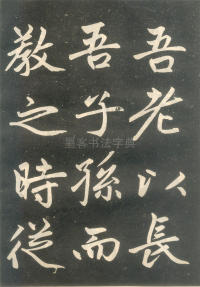 吾老以長
吾子孫而
教之時従
墨客书法字典